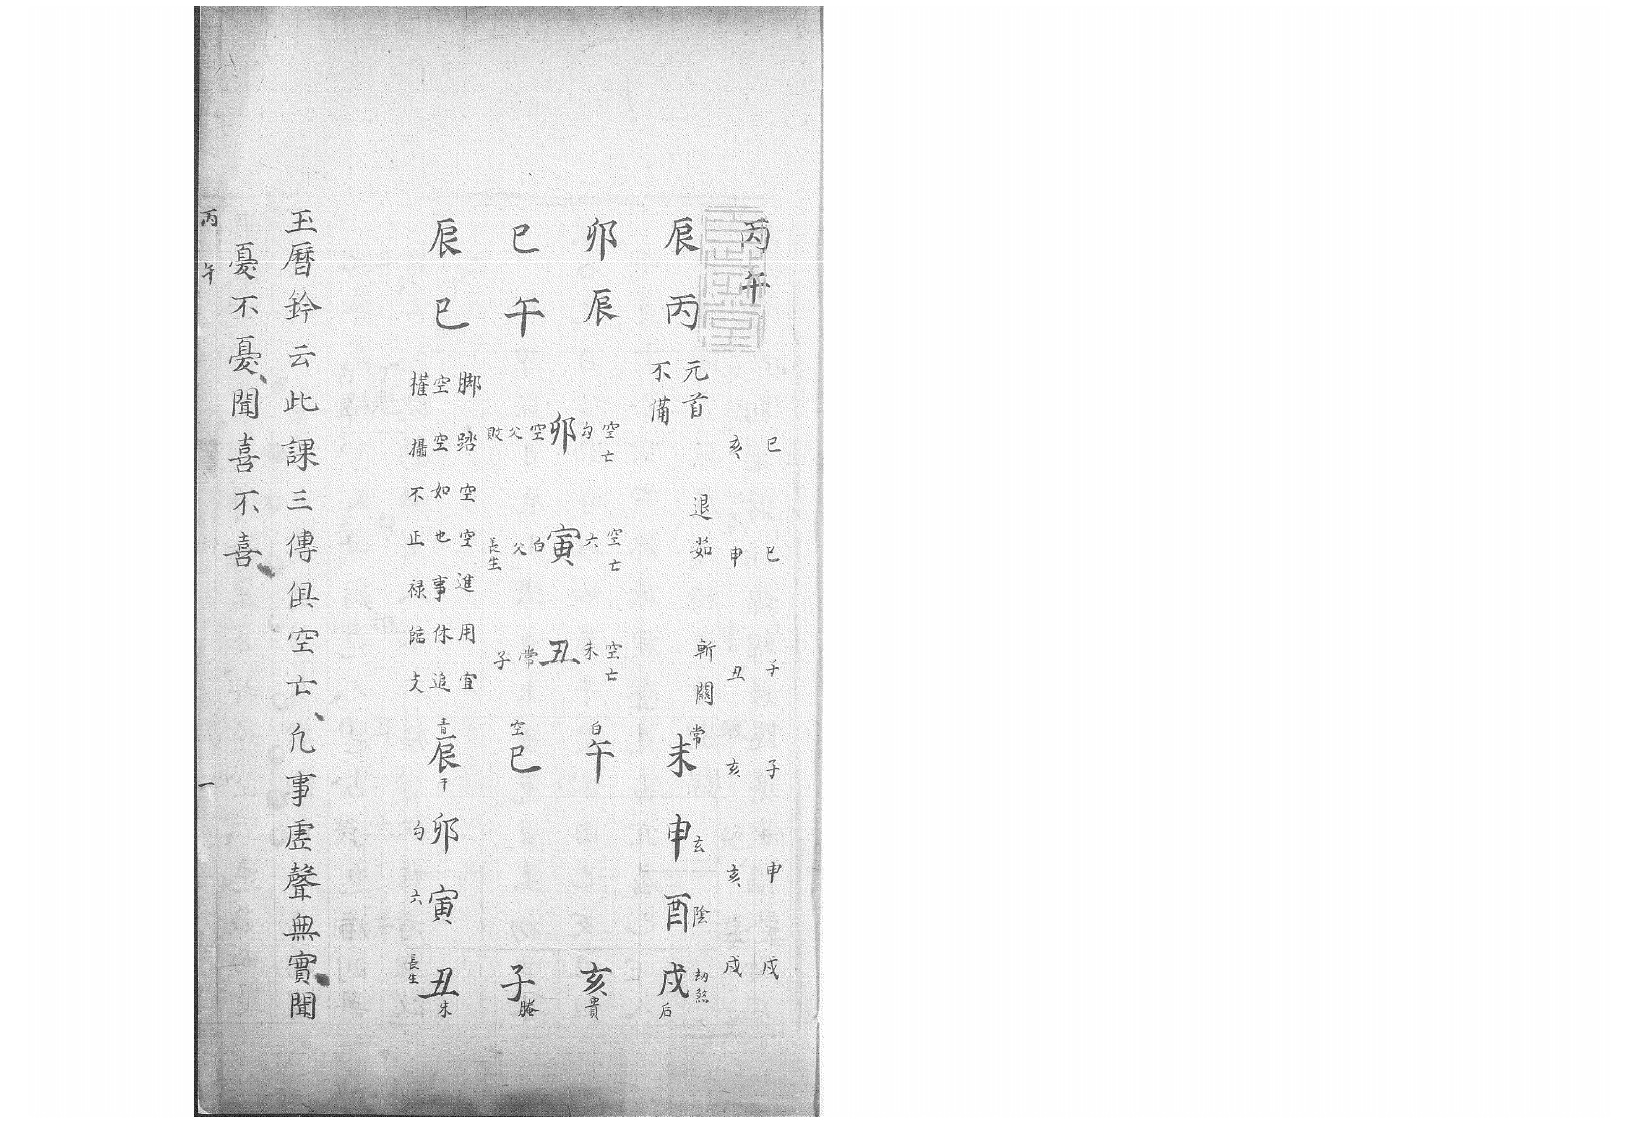 丙午
巳 巳 子 子 申 戌
亥 申 丑 亥 亥 戌
元首 退茹 斬關
不備
辰丙 未常 申玄 酉陰 戌后 劫煞
卯辰 午白 亥貴
空亡 勾 卯 空 父 敗
空亡 六 寅 白 父 長生
空亡 朱 丑 常 子
巳午 巳空 子螣
辰巳 辰青 干 卯勾 寅六 丑朱 長生
脚踏空空進用宜
空空如也事休追
權攝不正祿臨支
玉曆鈐云此課三傳俱空亡凡事虛聲無實聞
憂不憂聞喜不喜
丙午 一